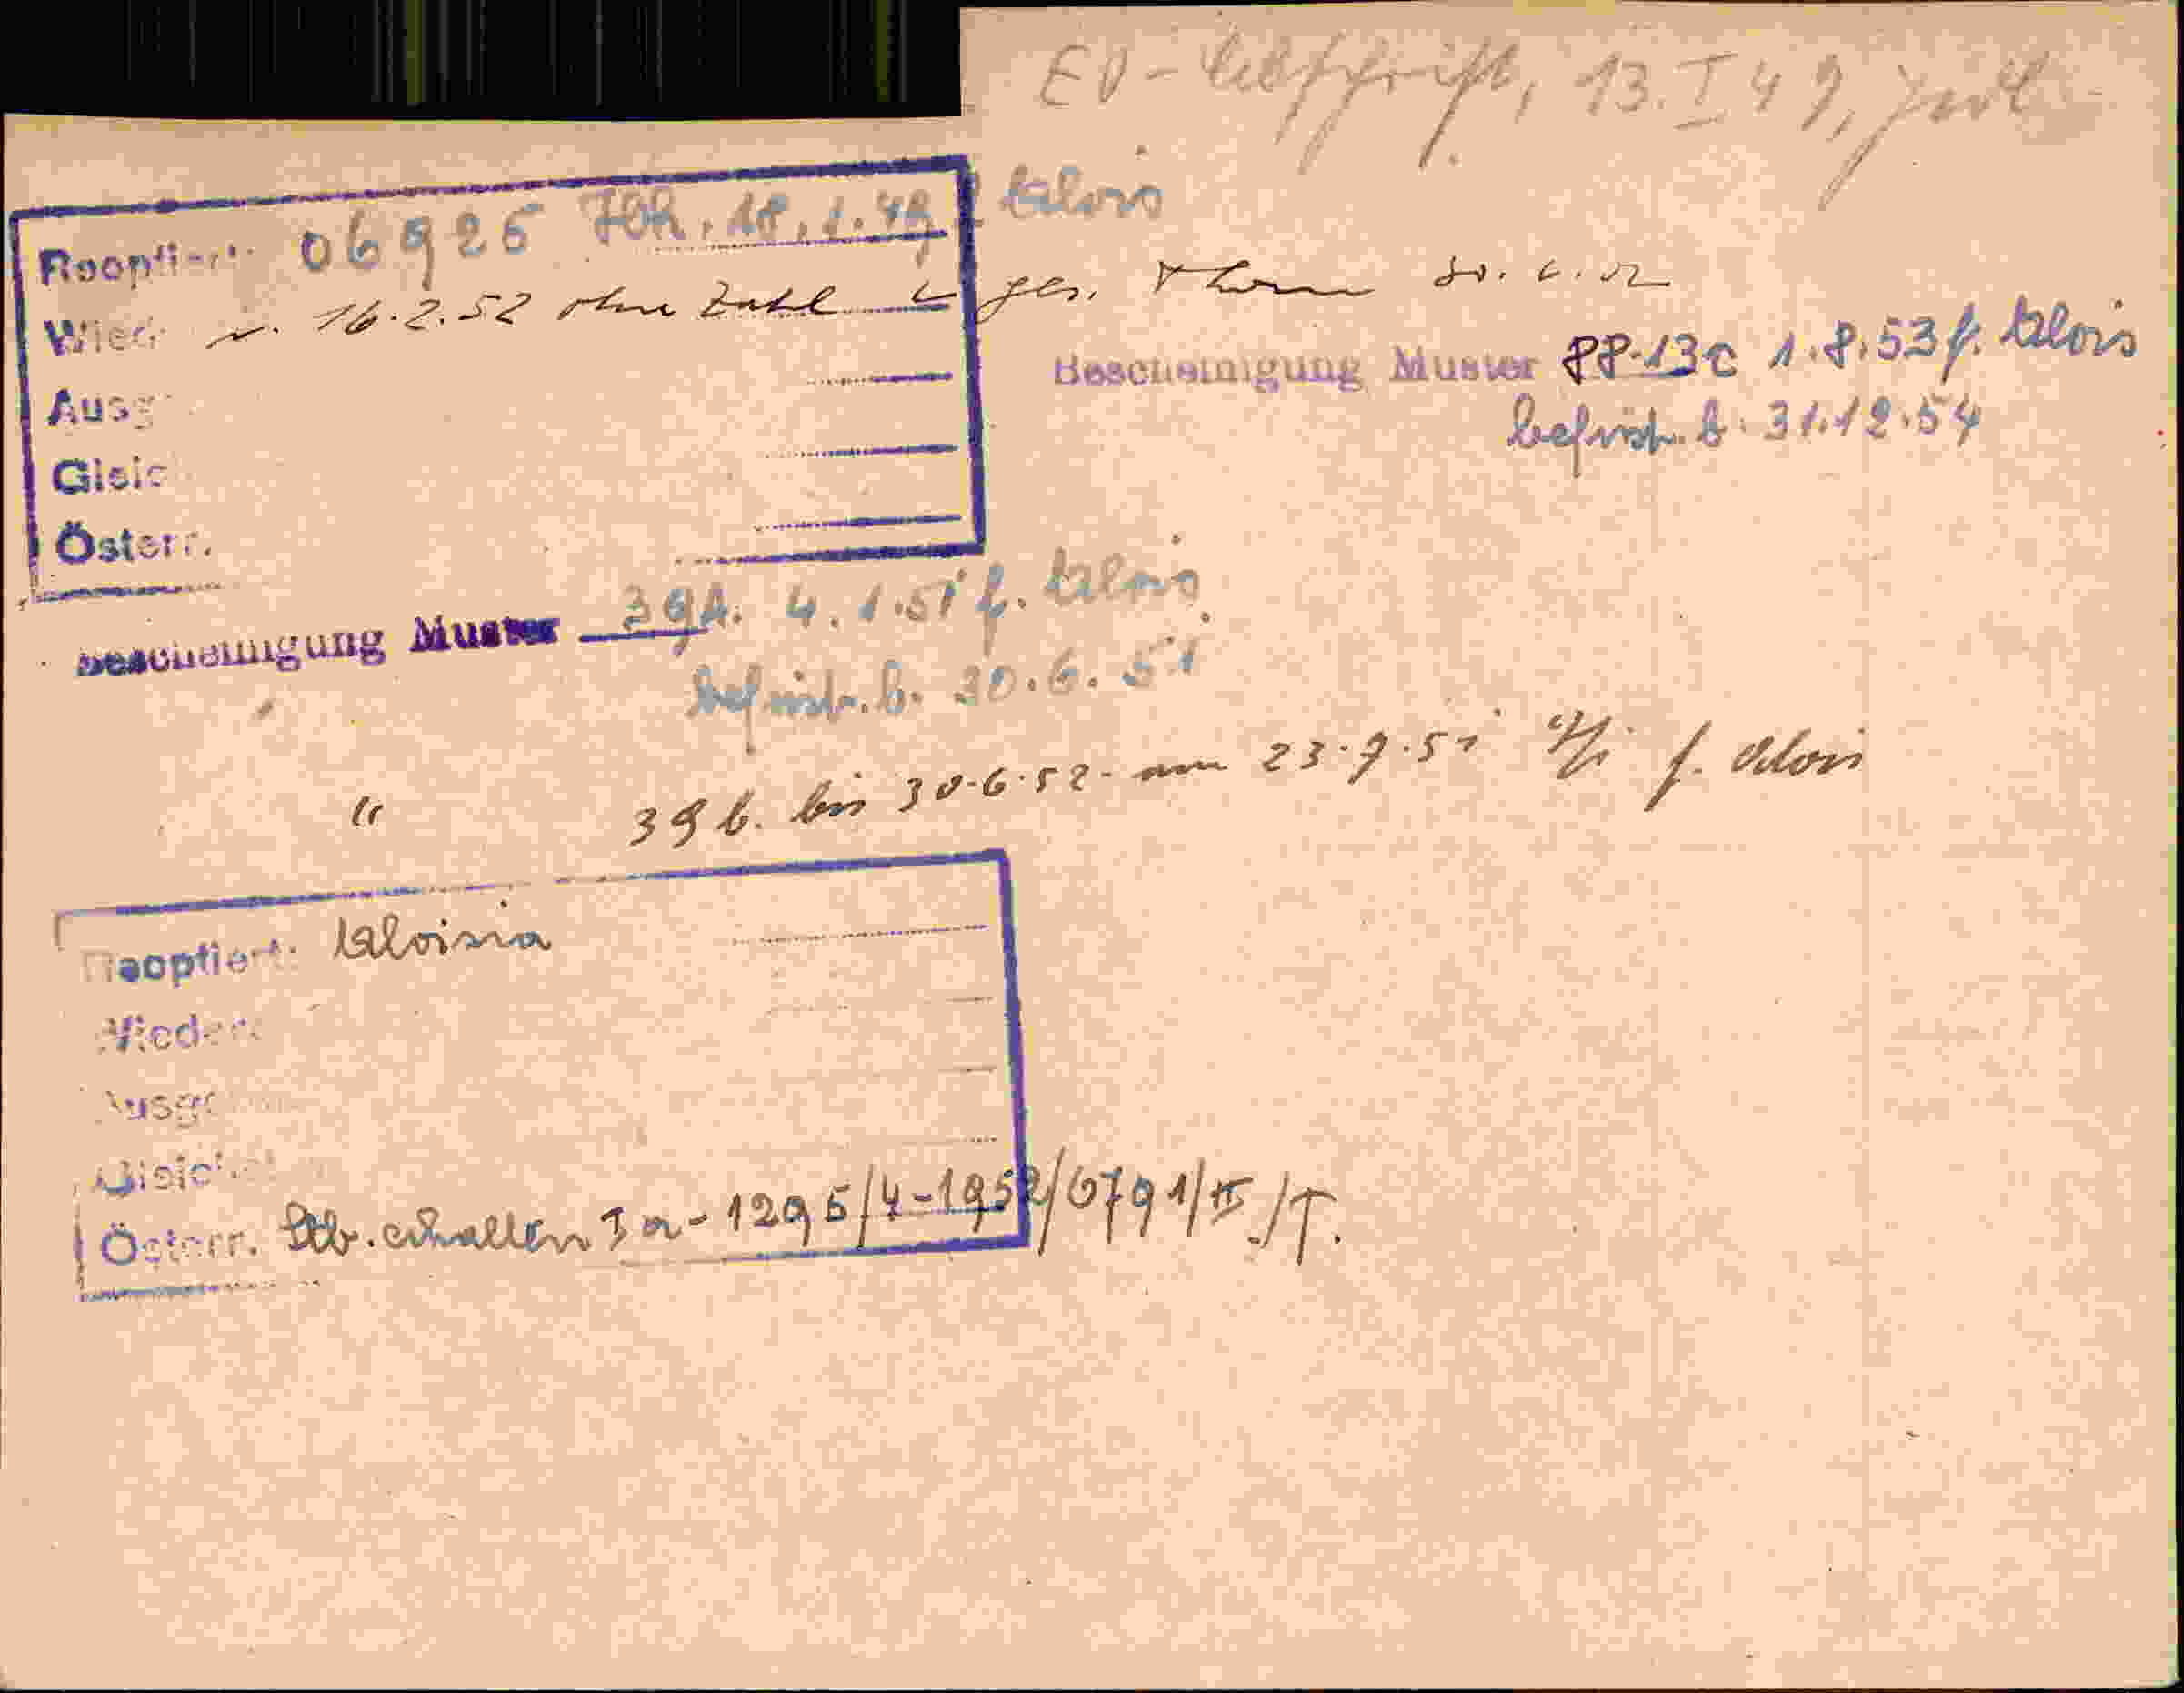 EO-Abschrift, 13. I 49,
Reoptiert: 06925 18.1.49 f. Alois
Wied v. 16.2.52 ohne Zahl ges.
Bescheinigung Muster 88-13c 1.8.53 f. Alois
befrist. b. 31.12.54
Ausg
Gleic
Österr.
Bescheinigung Muster 39A. 4.1.51 f. Alois
befrist. b. 30.6.51
" 39 b. bis 30.6.52 - am 23.7.51 f. Alois
Reoptiert: Aloisia
Wieder
Ausge
Gleich
Österr. Stb. erhalten I a - 1295/4-1952/6791/II/T.